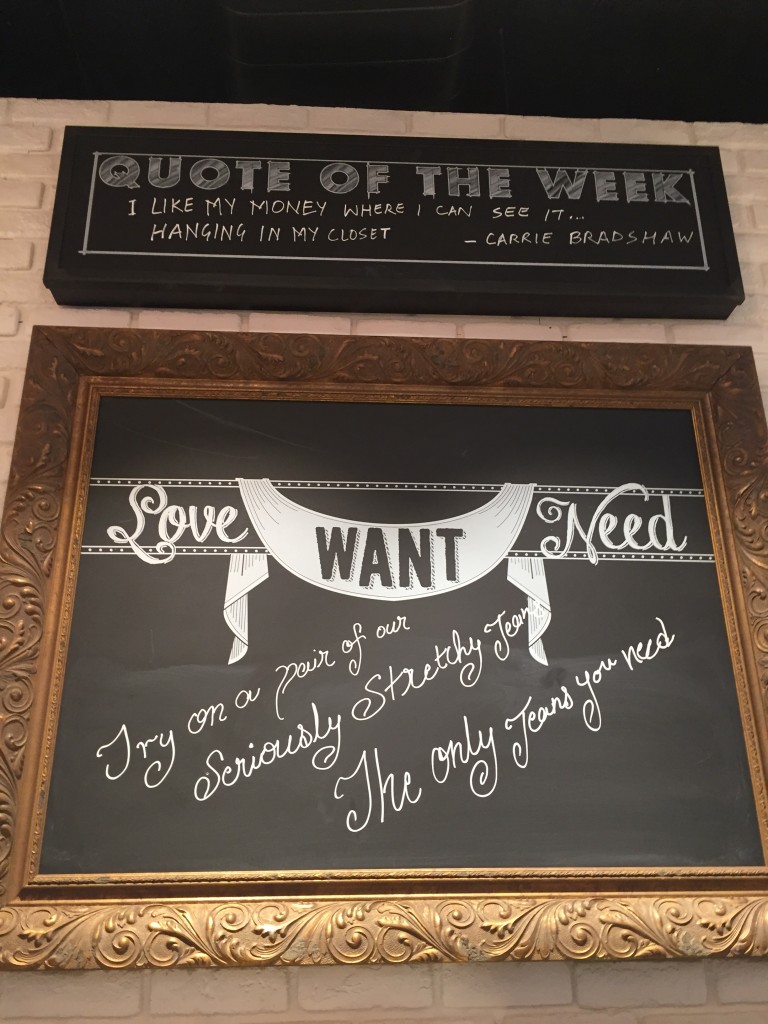 QUOTE OF THE WEEK
I LIKE MY MONEY WHERE I CAN SEE IT...
HANGING IN MY CLOSET - CARRIE BRADSHAW
Love WANT Need
Try on a pair of our
Seriously Stretchy Jeans
The only Jeans you need